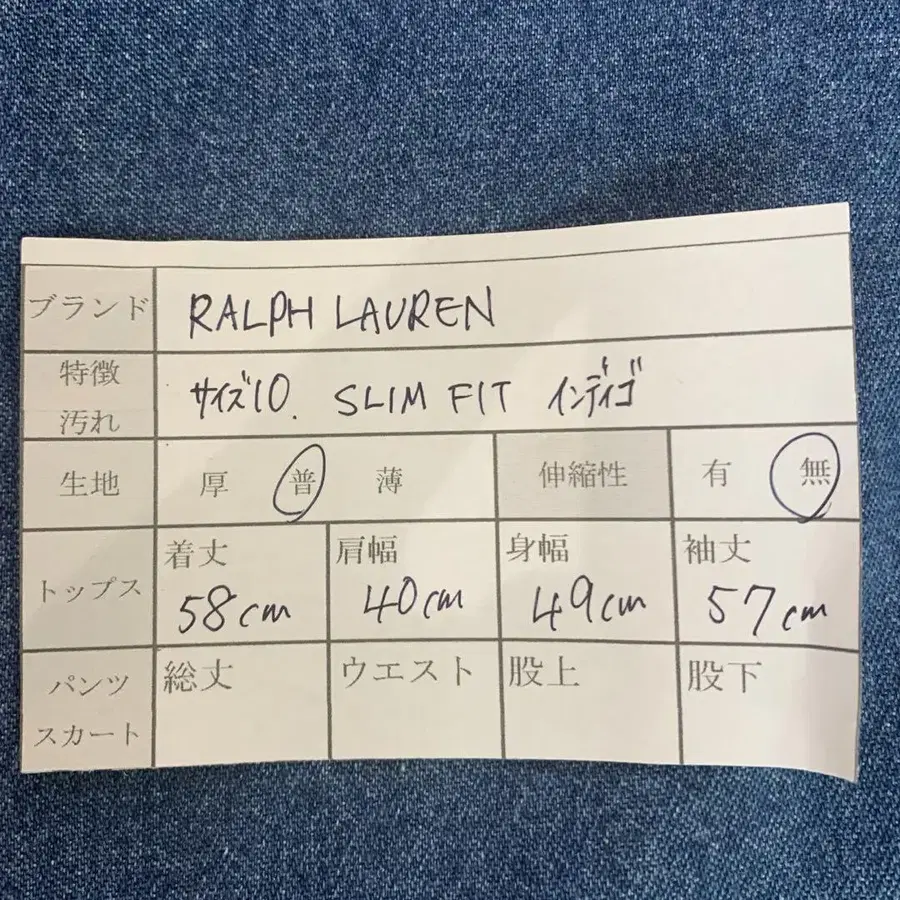 ブランド RALPH LAUREN
特徴 汚れ サイズ10. SLIM FIT インディゴ
生地 厚 普 薄 伸縮性 有 無
トップス 着丈 肩幅 身幅 袖丈
58cm 40cm 49cm 57cm
パンツ 総丈 ウエスト 股上 股下
スカート